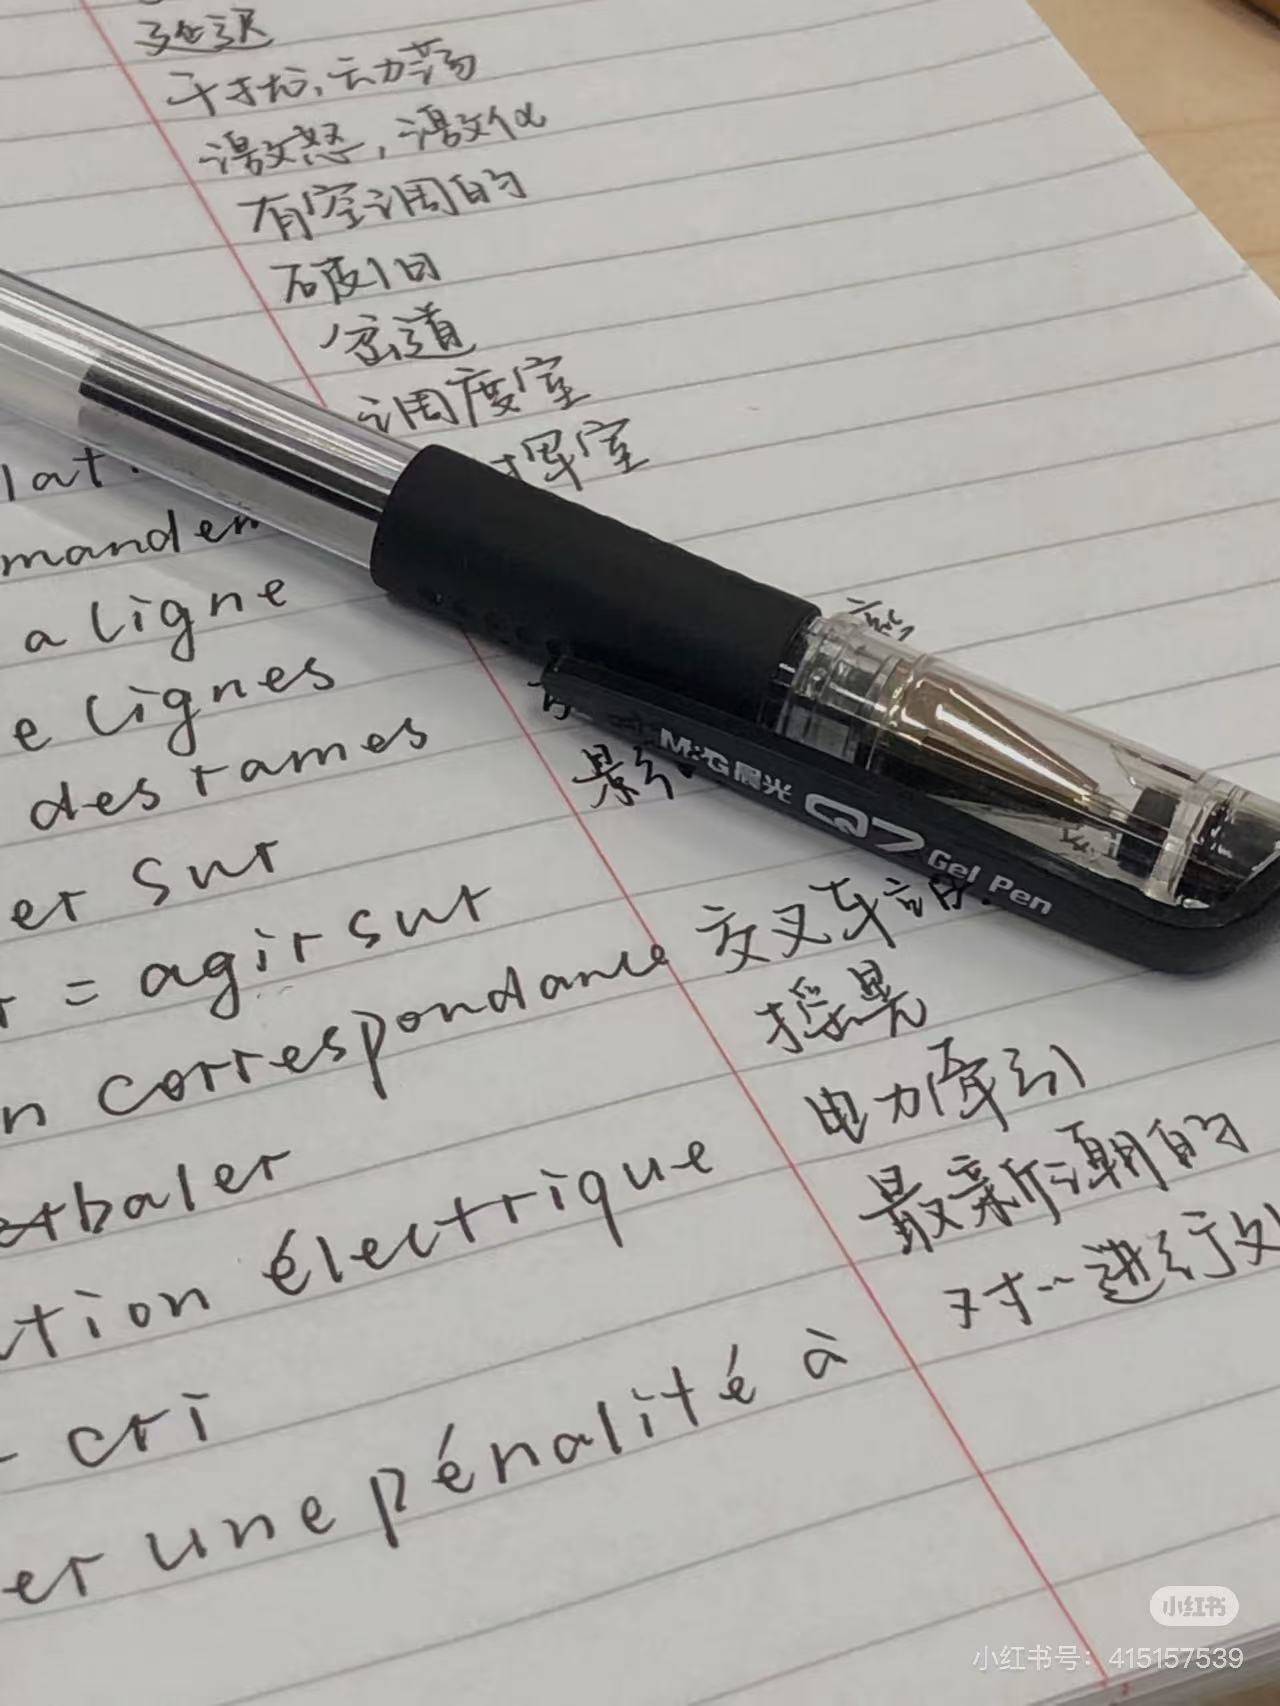 延误
干扰，动荡
激怒，激化
有空调的
破旧
岔道
调度室
挥室
lat
mandem
a ligne
e lignes
des rames
er sur
影
M&G 晨光 Q7 Gel Pen
= agir sur
n correspondance 交叉车
rbaler
电力牵引
tion électrique
最新潮的
cri
对…进行处
er une pénalité à
小红书
小红书号：415157539